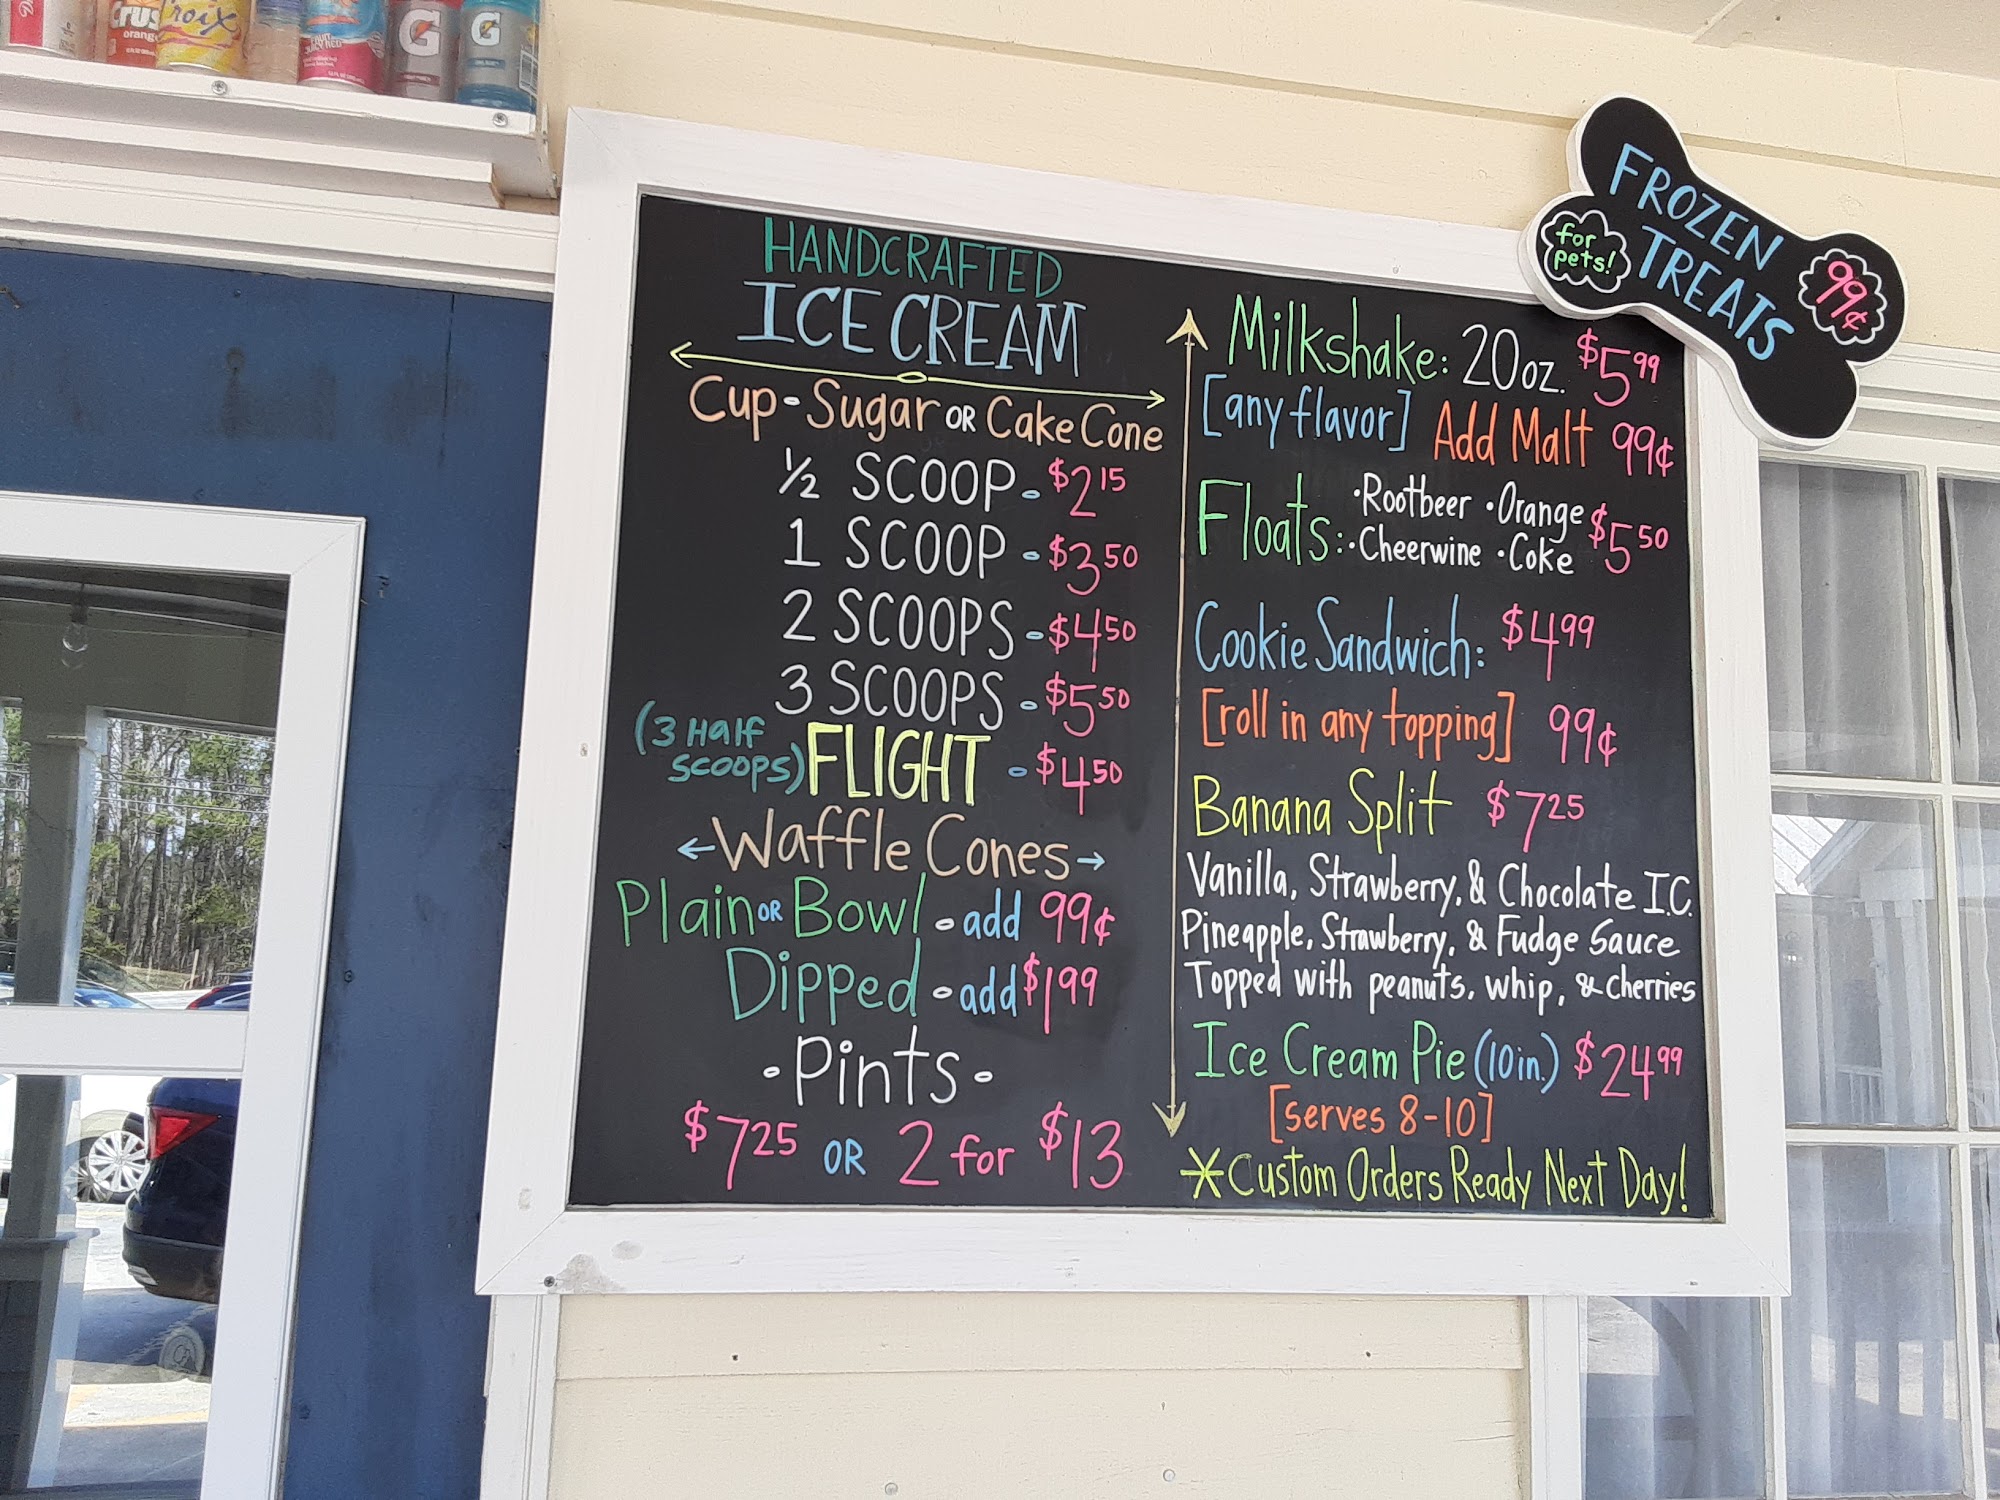 Crus
orange
Croix
FRUIT
JUICY RED
G
G
HANDCRAFTED
ICE CREAM
Cup - Sugar OR Cake Cone
½ SCOOP - $2.15
1 SCOOP - $3.50
2 SCOOPS - $4.50
3 SCOOPS - $5.50
(3 Half
SCOOPS) FLIGHT - $4.50
Waffle Cones
Plain OR Bowl - add 99¢
Dipped - add $1.99
- Pints -
$7.25 OR 2 for $13
Milkshake: 20oz. $5.99
[any flavor] Add Malt 99¢
Floats: · Rootbeer · Orange $5.50
· Cheerwine · Coke
Cookie Sandwich: $4.99
[roll in any topping] 99¢
Banana Split $7.25
Vanilla, Strawberry, & Chocolate I.C.
Pineapple, Strawberry, & Fudge Sauce
Topped with peanuts, whip, & cherries
Ice Cream Pie (10in.) $24.99
[serves 8-10]
*Custom Orders Ready Next Day!
FROZEN
TREATS
for
pets!
99¢